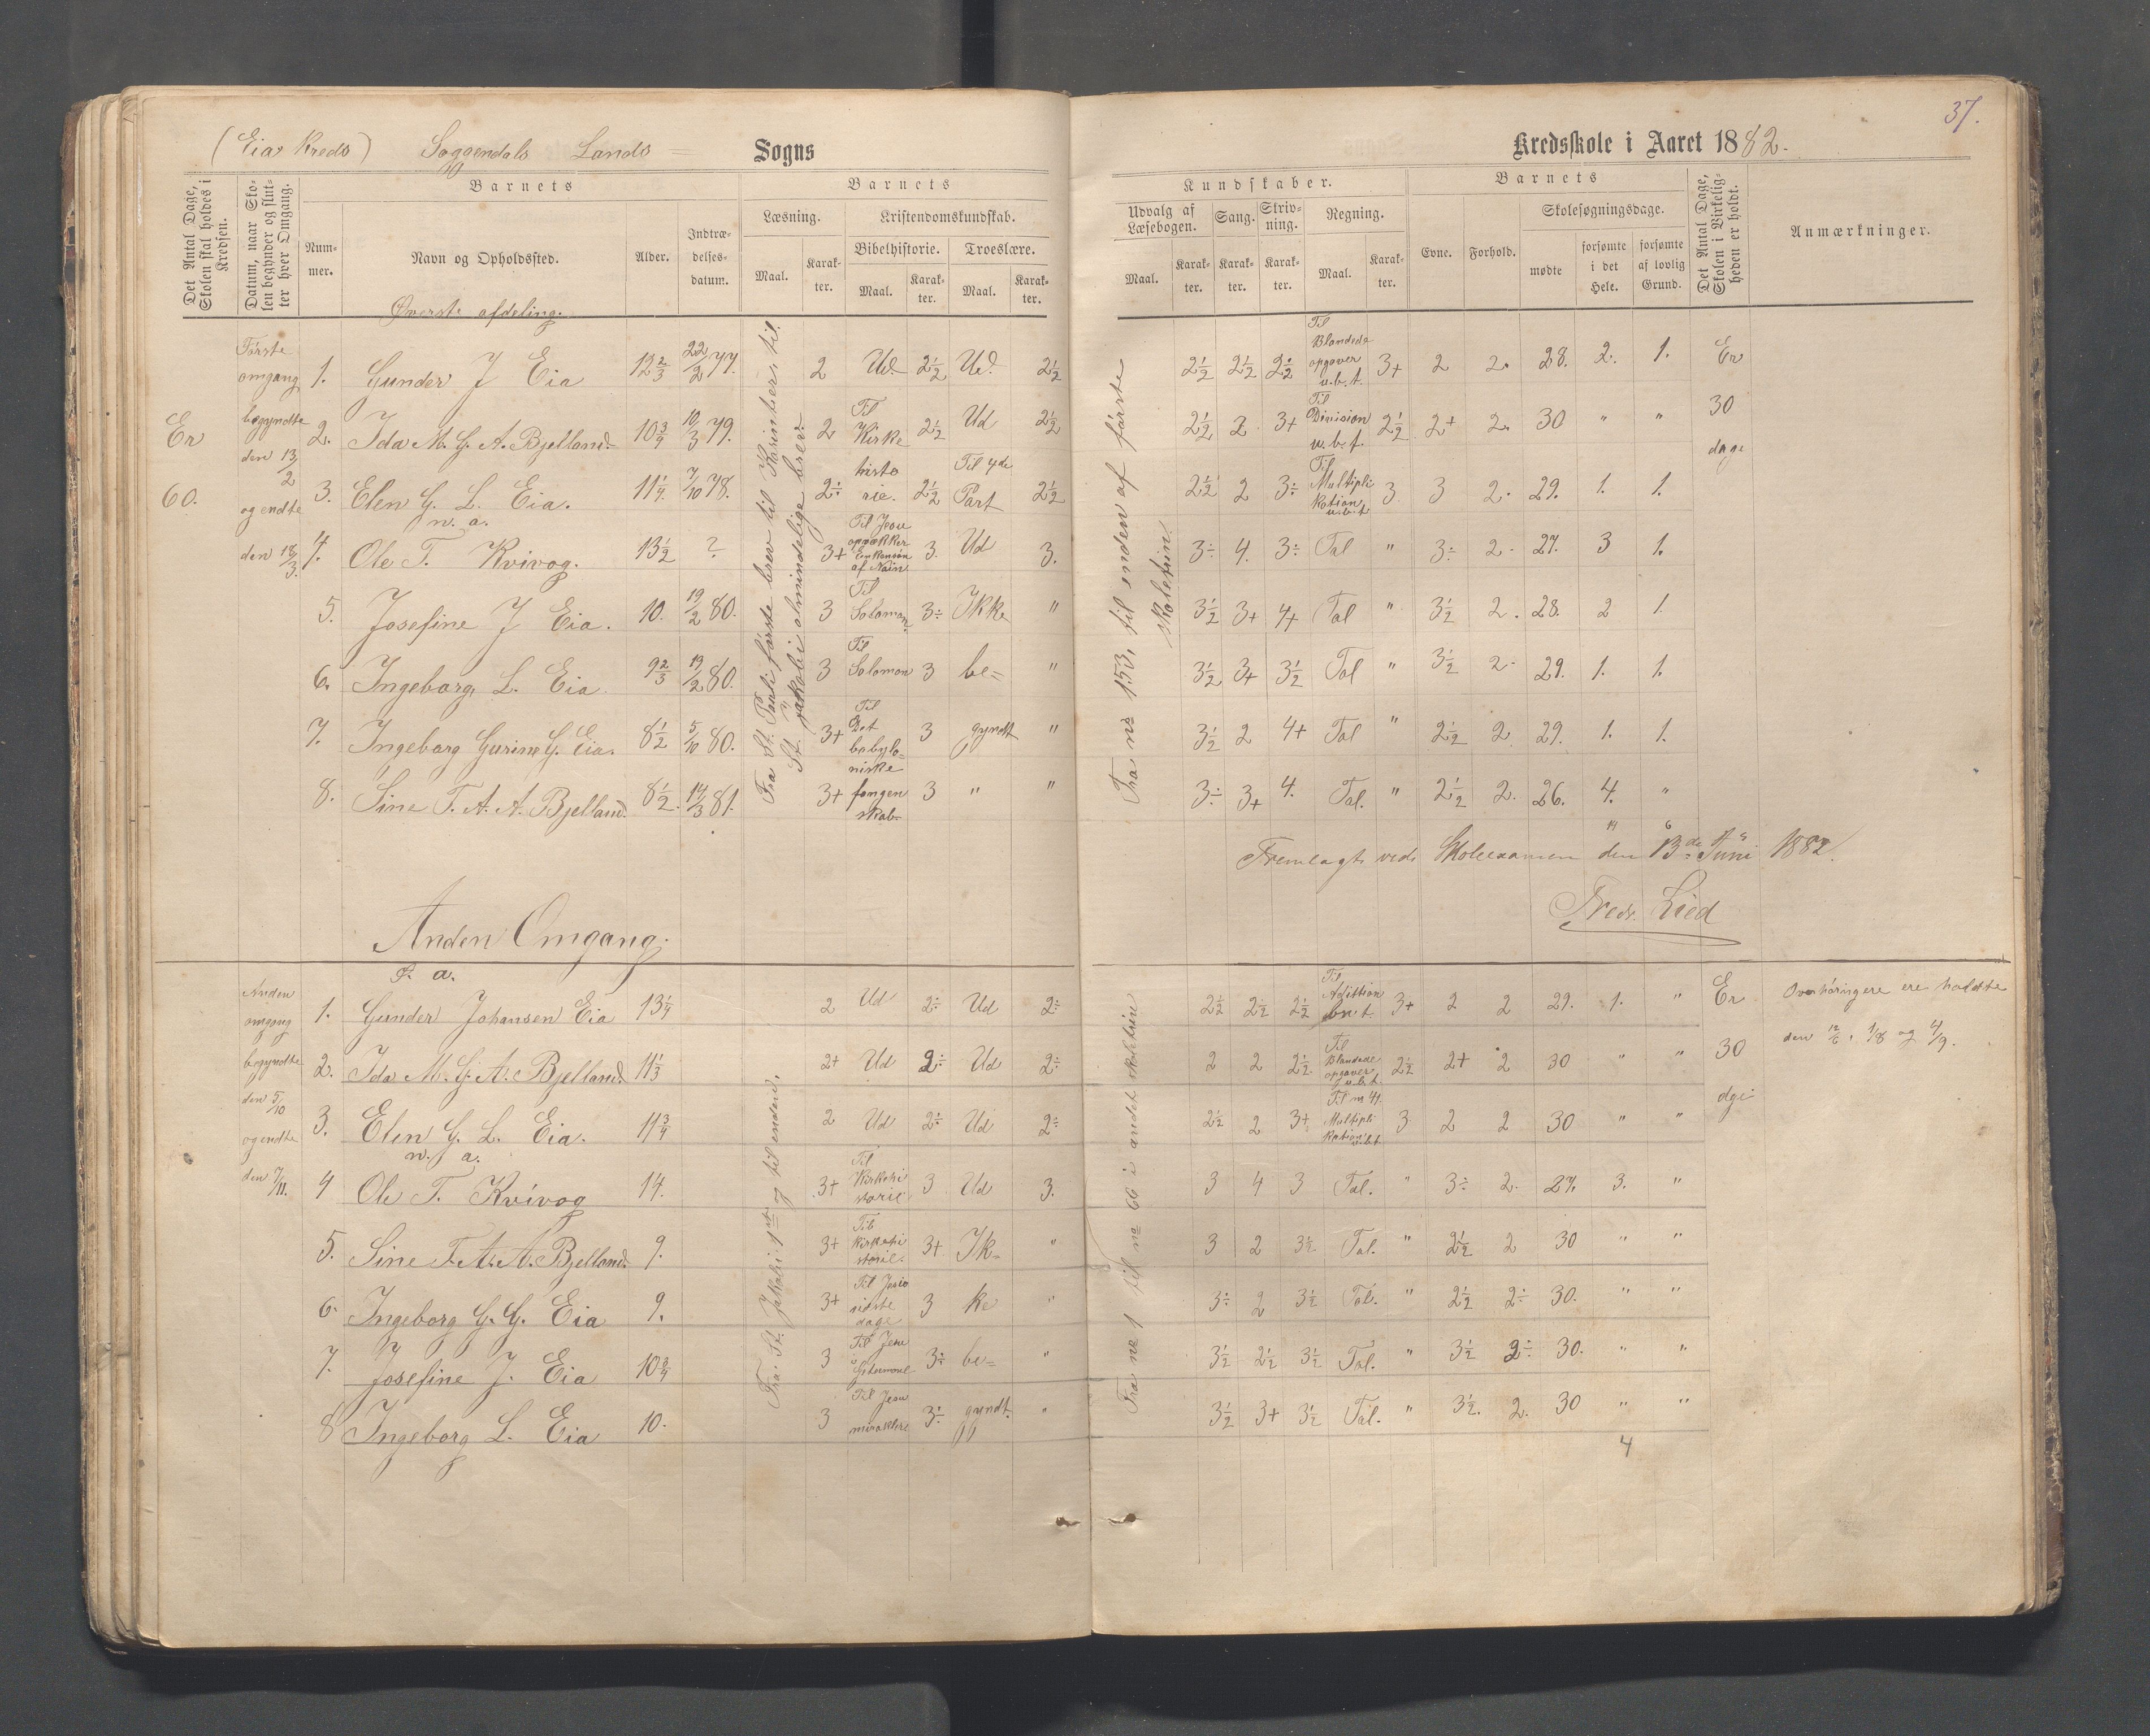 37.
(Eia Kreds) Soggendals Lands = Sogns
Kredsskole i Aaret 1882.
Det Antal Dage, Skolen skal holdes i Kredsen.
Datum, naar Skolen begynder og slutter hver Omgang.
Barnets
Nummer.
Navn og Opholdssted.
Alder.
Indtrædelsesdatum.
Barnets
Læsning.
Maal.
Karakter.
Kristendomskundskab.
Bibelhistorie.
Maal.
Karakter.
Troeslære.
Maal.
Karakter.
Kundskaber.
Udvalg af Læsebogen.
Maal.
Karakter.
Sang.
Karakter.
Skrivning.
Karakter.
Regning.
Maal.
Karakter.
Barnets
Evne.
Forhold.
Skolesøgningsdage.
mødte
forsømte i det Hele.
forsømte af lovlig Grund.
Det Antal Dage, Skolen i Virkeligheden er holdt.
Anmærkninger.
Øverste afdeling.
Er
60.
Første omgang begyndte den 13/2 og endte den 18/3.
Fra St. Pauli første brev til Korintierne til St. Jakobi almindelige brev.
Fra no 153, til enden af første skoletrin.
Er 30 dage
1. Gunder J Eia 12 2/3 22/2 77. 2 Ud. 2 1/2 Ud. 2 1/2 2 1/2 2 1/2 2 1/2 Til Blandede opgaver u.b.t. 3+ 2 2. 28. 2. 1.
2. Ida M. G. A. Bjelland. 10 3/4 10/3 79. 2 Til Kirke 2 1/2 Ud 2 1/2 2 1/2 2 3+ Til Division u.b.t. 2 1/2 2+ 2. 30 " "
3. Elen G. L. Eia. 11 1/4 7/10 78. 2÷ histo rie. 2 1/2 Til 4de Part 2 1/2 2 1/2 2 3÷ Til Multipli kation u.b.t. 3 3 2. 29. 1. 1.
n. a.
4. Ole T. Kvivog. 13 1/2 ? 3+ Til Jesu opvækker Enkensøn af Nain 3. Ud 3. 3÷ 4. 3÷ Tal " 3÷ 2. 27. 3 1.
5. Josefine J Eia. 10. 19/2 80. 3 Til Salomon 3÷ Ikke " 3 1/2 3+ 4+ Tal " 3 1/2 2. 28. 2 1.
6. Ingeborg L. Eia. 9 2/3 19/2 80. 3 Til Salomon 3 be= " 3 1/2 3+ 3 1/2 Tal " 3 1/2 2. 29. 1. 1.
7. Ingeborg Gurine G. Eia. 8 1/2 5/10 80. 3+ Til Det babylo= 3 gyndt " 3 1/2 2 4+ Tal " 2 1/2 2. 29. 1. 1.
8. Sine T. A. A. Bjelland. 8 1/2. 14/3 81. 3+ niske fangen skab. 3 " " 3÷ 3+ 4. Tal. " 2 1/2 2. 26. 4. "
14 6
Fremlagt ved Skoleexamen den 13de Juni 1882.
Fredr. Lied
Anden Omgang.
Anden omgang begyndte den 5/10 og endte den 7/11.
Fra St. Jakobi 1ste og til enden.
Fra no 1 til no 66 i andet skoletrin
Er 30 dge
Overhøringere ere holdte
den 12/6, 1/8 og 4/9.
ø. a.
1. Gunder Johansen Eia 13 1/4 2 Ud 2÷ Ud 2÷ 2 1/2 2 1/2 2 1/2 Til Adittion 3+ 2 2 29. 1. "
2. Ida M. G. A. Bjelland. 11 1/3 2+ Ud 2÷ Ud 2÷ 2 2 2 1/2 Til Blandede opgaver u.b.t. 2 1/2 2+ 2 30 " "
3. Elen G. L. Eia. 11 3/4 2 Ud 2÷ Ud 2÷ 2 1/2 2 3+ Til no 41. Multipli kation u.b.t. 3 2 2 30 " "
n. a.
4 Ole T. Kvivog 14. 3+ Til Kirkehi storie 3 Ud 3. 3 4 3 Tal. " 3÷ 2. 27. 3. "
5. Sine T. A. A. Bjelland. 9. 3+ Til Kirkehi storie. 3+ Ik= " 3 2 3 1/2 Tal. " 2 1/2 2 30 " "
6. Ingeborg G. G. Eia 9. 3+ Til Jesu sidste dage 3 ke " 3÷ 2 3 1/2 Tal. " 2 1/2 2÷ 30. " "
7. Josefine J. Eia 10 3/4 3 Til Jesu 3÷ be= " 3 1/2 2 1/2 3 1/2 Tal. " 3 1/2 2÷ 30. " "
8 Ingeborg L. Eia 10. 3 Til Jesu mirakler 3÷ gyndt. " 3 1/2 3+ 3 1/2 Tal. " 3 1/2. 2. 30 " "
4